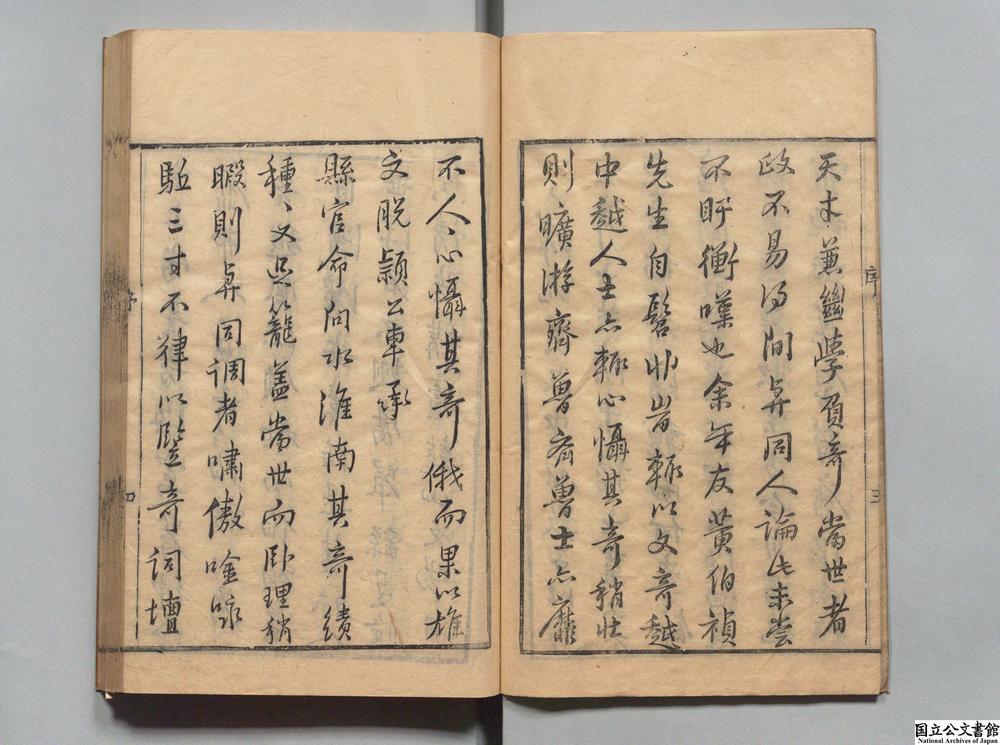 天才兼幽學負奇當世者
政不易得間與同人論此未嘗
不盱衡嘆也余年友黃伯禎
先生自髫丱峕輒以文奇越
中越人士亦輒心懾其奇稍壯
則曠游齊魯齊魯士亦靡
序
三
不人人心懾其奇俄而果以雄
文脫穎公車承
縣官命问水淮南其奇績
種〻又足籠盖當世而卧理稍
暇則與同调者嘯傲唫咏
駈三寸不律以竪奇词壇
序
四
国立公文書館
National Archives of Japan